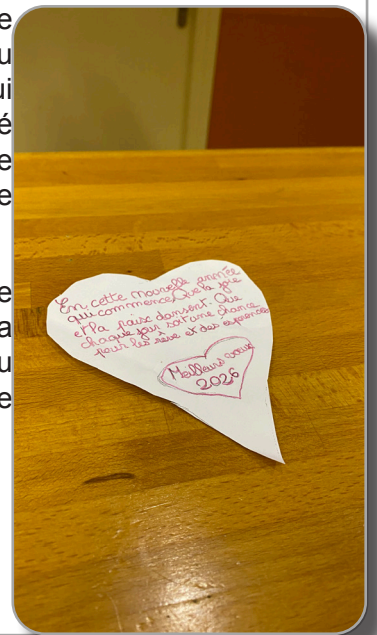 En cette nouvelle année
qui commence Que la joie
et la paix dansent. Que
chaque jour soit une chance
pour les rêve et des esperances
Meilleurs voeux
2026